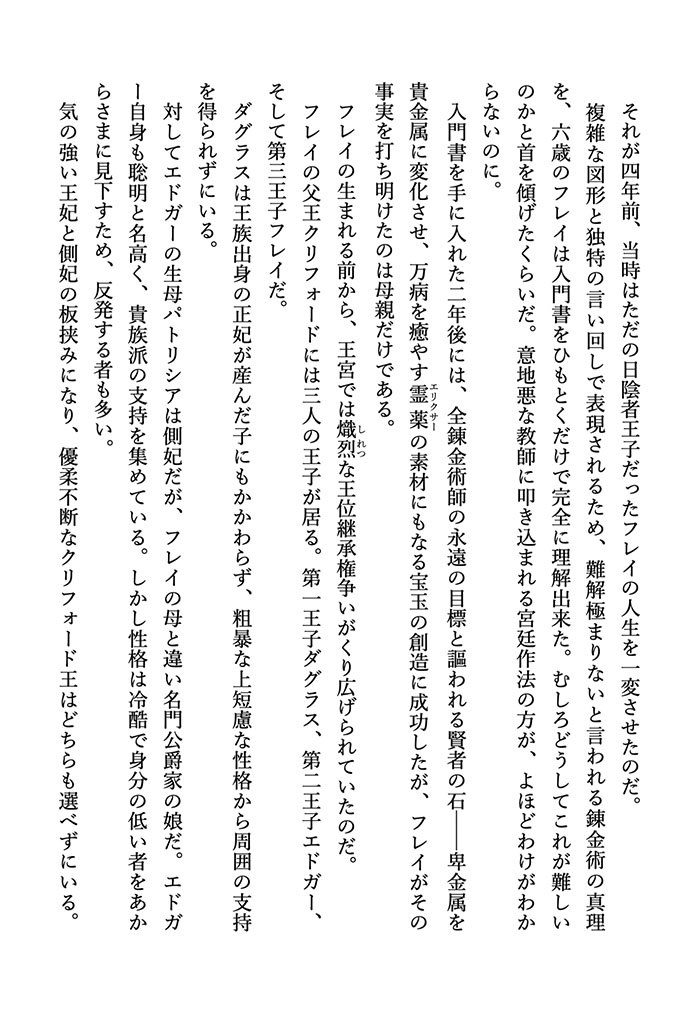 それが四年前、当時はただの日陰者王子だったフレイの人生を一変させたのだ。
複雑な図形と独特の言い回しで表現されるため、難解極まりないと言われる錬金術の真理
を、六歳のフレイは入門書をひもとくだけで完全に理解出来た。むしろどうしてこれが難しい
のかと首を傾げたくらいだ。意地悪な教師に叩き込まれる宮廷作法の方が、よほどわけがわか
らないのに。
入門書を手に入れた二年後には、全錬金術師の永遠の目標と謳われる賢者の石――卑金属を
貴金属に変化させ、万病を癒やす霊薬エリクサーの素材にもなる宝玉の創造に成功したが、フレイがその
事実を打ち明けたのは母親だけである。
フレイの生まれる前から、王宮では熾烈しれつな王位継承権争いがくり広げられていたのだ。
フレイの父王クリフォードには三人の王子が居る。第一王子ダグラス、第二王子エドガー、
そして第三王子フレイだ。
ダグラスは王族出身の正妃が産んだ子にもかかわらず、粗暴な上短慮な性格から周囲の支持
を得られずにいる。
対してエドガーの生母パトリシアは側妃だが、フレイの母と違い名門公爵家の娘だ。エドガ
ー自身も聡明と名高く、貴族派の支持を集めている。しかし性格は冷酷で身分の低い者をあか
らさまに見下すため、反発する者も多い。
気の強い王妃と側妃の板挟みになり、優柔不断なクリフォード王はどちらも選べずにいる。